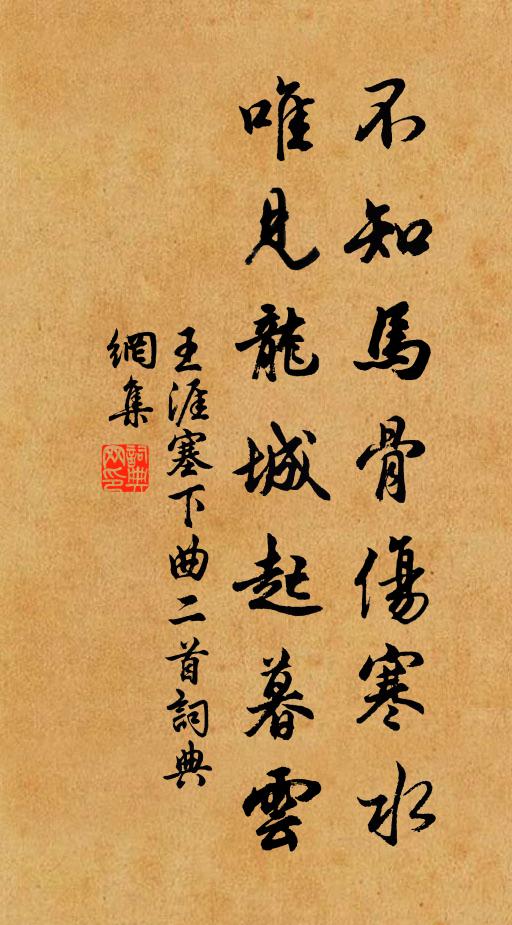 不知馬骨傷寒水
唯見龍城起暮雲
王涯塞下曲二首詞典
網集
詞典網印